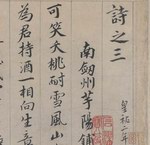 詩之三
皇祐二年
南劒州芋陽鋪
可笑夭桃耐雪風山
為君持酒一相向生意